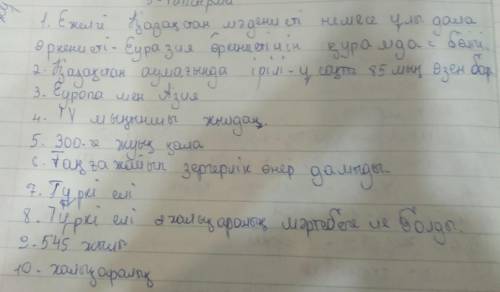 1. Ежелгі Қазақстан мәдениеті немесе ұлы дала
өркениеті - Еуразия өркениетінің құрамдас бөлігі.
2. Қазақстан аумағында ірілі-ұсақты 85 мың өзен бар
3. Еуропа мен Азия
4. IV мыңыншы жылдақ.
5. 300-ге жуық қала
6. Таңғажайып зергерлік өнер дамыды.
7. Түркі елі
8. Түркі елі халықаралық мәртебеге ие болды.
9. 545 жылы
10. халықаралық